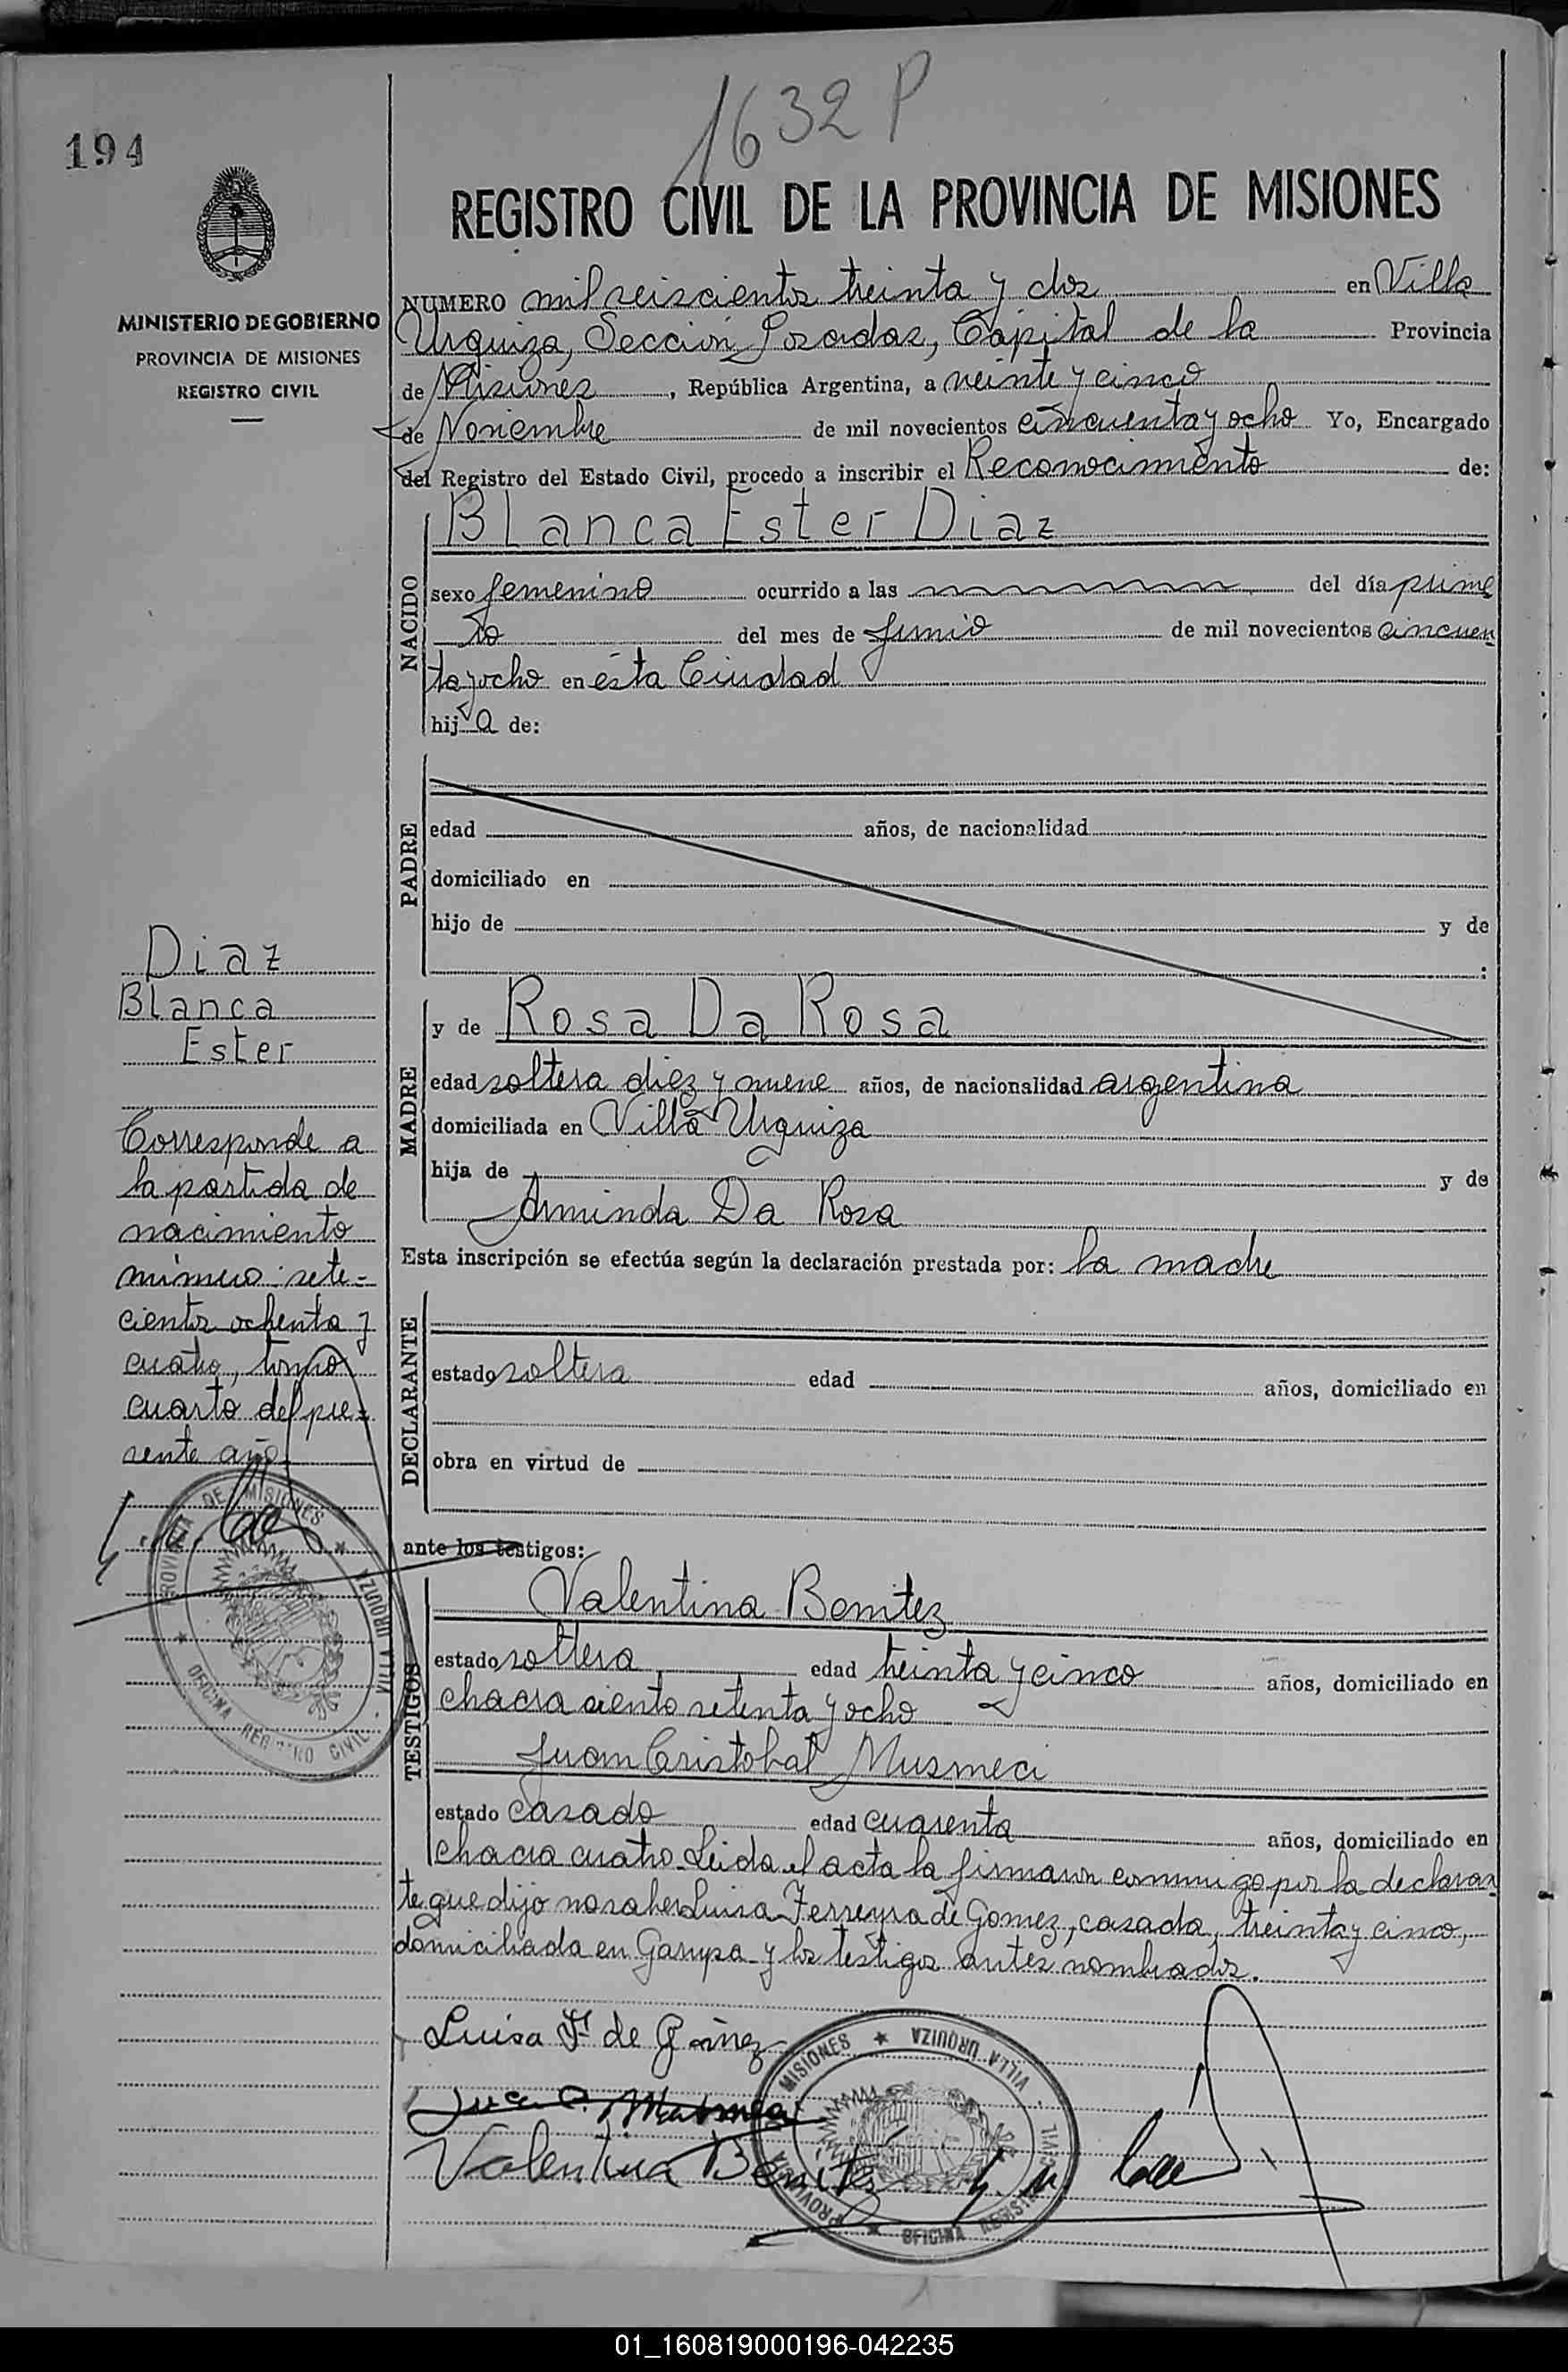 1632 P
194
REGISTRO CIVIL DE LA PROVINCIA DE MISIONES
MINISTERIO DE GOBIERNO
PROVINCIA DE MISIONES
REGISTRO CIVIL
NUMERO mil seiscientos treinta y dos en Villa
Urquiza, Sección Posadas, Capital de la Provincia
de Misiones, República Argentina, a veinte y cinco
de Noviembre de mil novecientos cincuenta y ocho Yo, Encargado
del Registro del Estado Civil, procedo a inscribir el Reconocimiento de:
NACIDO
Blanca Ester Diaz
sexo femenino ocurrido a las del día prime
ro del mes de Junio de mil novecientos cincuen
ta y ocho en ésta Ciudad
hija de:
PADRE
edad años, de nacionalidad
domiciliado en
hijo de y de
:
MADRE
y de Rosa Da Rosa
edad soltera diez y nueve años, de nacionalidad argentina
domiciliada en Villa Urquiza
hija de y de
Arminda Da Rosa
Esta inscripción se efectúa según la declaración prestada por: la madre
DECLARANTE
estado soltera edad años, domiciliado en
obra en virtud de
ante los testigos:
TESTIGOS
Valentina Benitez
estado soltera, edad treinta y cinco años, domiciliado en
chacra ciento setenta y ocho
Juan Cristobal Musmeci
estado casado edad cuarenta años, domiciliado en
chacra cuatro. Leida el acta la firmaron conmigo por la declaran
te que dijo no saber Luisa Ferreyra de Gomez, casada, treinta y cinco,
domiciliada en Garupa y los testigos antes nombrados.
Luisa F. de Gómez
Juan C. Musmeci
Valentina Benitez
PROVINCIA DE MISIONES ★ VILLA URQUIZA · OFICINA REGISTRO CIVIL ★
Diaz
Blanca
Ester
Corresponde a
la partida de
nacimiento
número sete-
cientos ochenta y
cuatro, tomo
cuarto del pre-
sente año.
PROVINCIA DE MISIONES ★ VILLA URQUIZA · OFICINA REGISTRO CIVIL ★
01_160819000196-042235